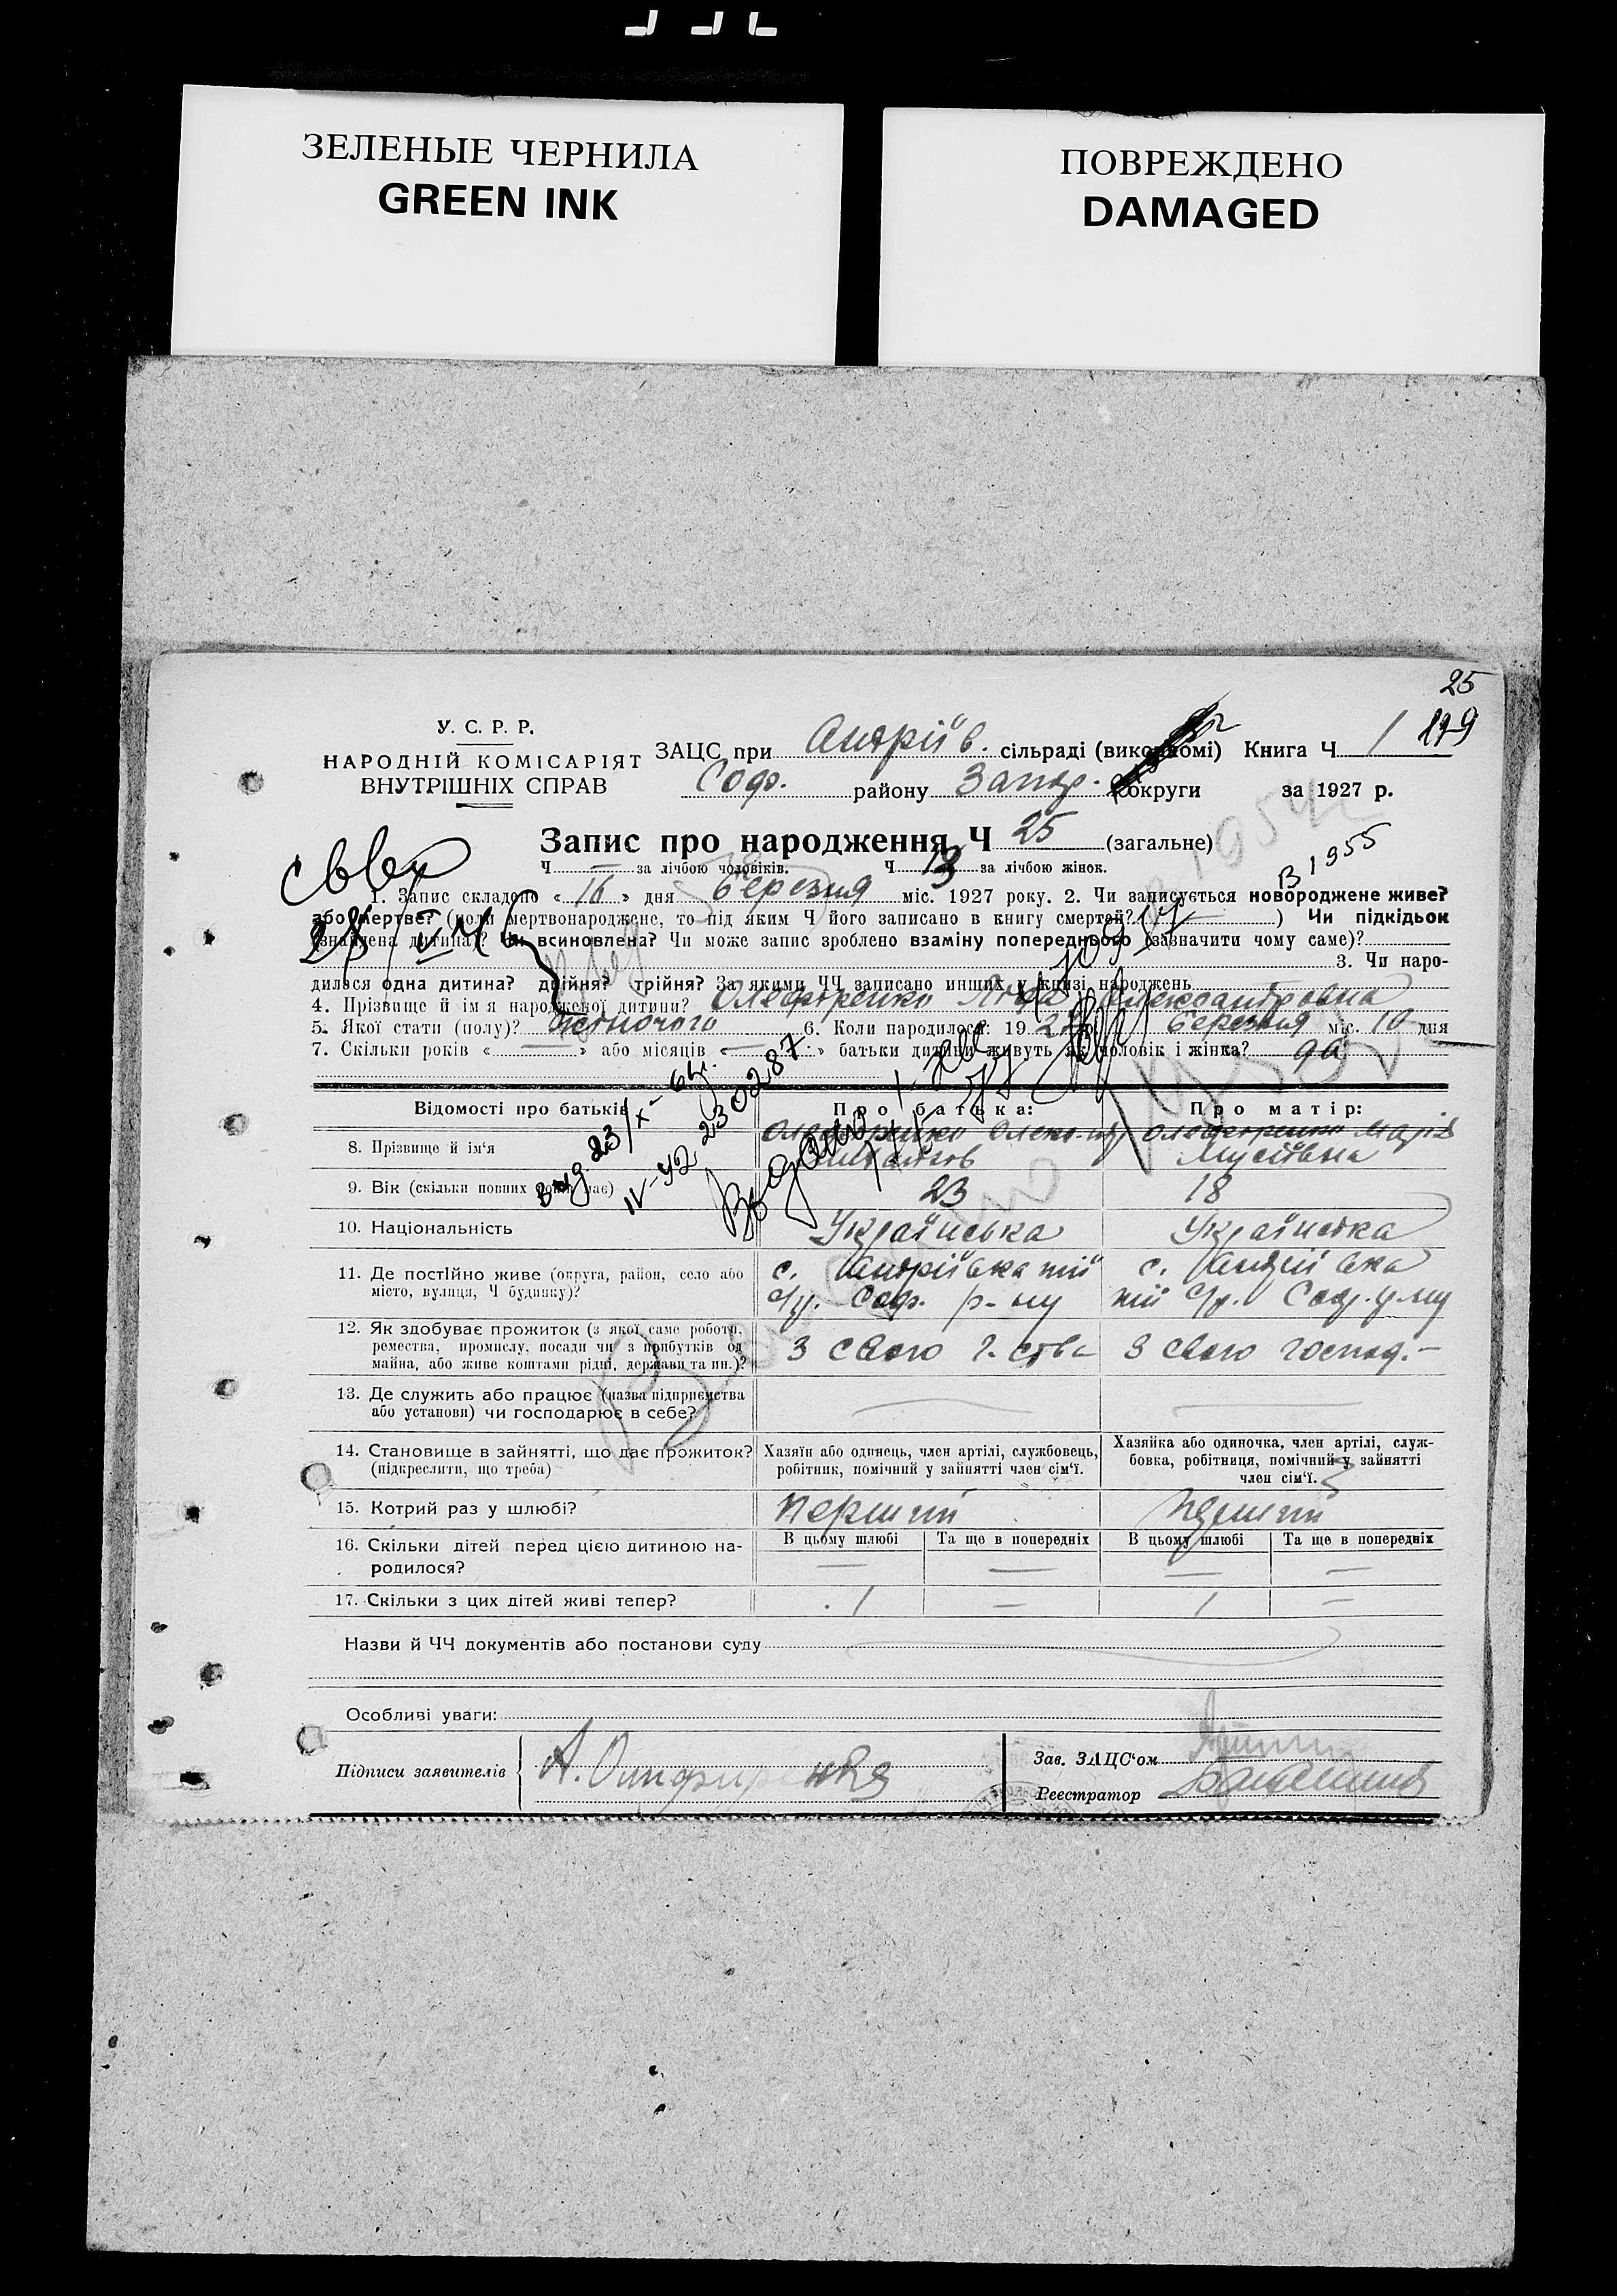 ЗЕЛЕНЫЕ ЧЕРНИЛА
GREEN INK
ПОВРЕЖДЕНО
DAMAGED
25
179
У. С. Р. Р.
НАРОДНІЙ КОМІСАРІЯТ
ВНУТРІШНІХ СПРАВ
ЗАЦС при Андріїв. сільраді (виконкомі) Книга Ч 1
Соф. району Запор. округи за 1927 р.
Запис про народження Ч 25 (загальне)
Ч — за лічбою чоловіків. Ч 13 за лічбою жінок.
В 1955
1. Запис складено « 16 » дня березня міс. 1927 року. 2. Чи записується новороджене живе?
або мертве? (коли мертвонароджене, то під яким Ч його записано в книгу смертей? —) Чи підкідьок
(знайдена дитина)? Чи всиновлена? Чи може запис зроблено взаміну попереднього (зазначити чому саме)?
3. Чи наро-
дилася одна дитина? двійня? трійня? За якими ЧЧ записано инших у книзі народжень
4. Прізвище й ім'я народженої дитини? Олефіренко Олександровна
5. Якої стати (полу)? жіночого 6. Коли народилося? 1927 р. березня міс. 10 дня
7. Скільки років « — » або місяців « — » батьки дитини живуть як чоловік і жінка?
Відомості про батьків
Про батька:
Про матір:
8. Прізвище й ім'я
Олефіренко
Олефіренко Марія
Мусіївна
9. Вік (скільки повних років має)
23
18
10. Національність
Українська
Українська
11. Де постійно живе (округа, район, село або
місто, вулиця, Ч будинку)?
с. Андріївка тій
с/р. Соф. р-ну
с. Андріївка
тій с/р. Соф. р-ну
12. Як здобуває прожиток (з якої саме роботи,
ремества, промислу, посади чи з прибутків од
майна, або живе коштами рідні, держави та ин.)?
З свого г.-ства
З свого господ.-
13. Де служить або працює (назва підприємства
або установи) чи господарює в себе?
14. Становище в зайнятті, що дає прожиток?
(підкреслити, що треба)
Хазяїн або одинець, член артілі, службовець,
робітник, помічний у зайнятті член сім'ї.
Хазяйка або одиночка, член артілі, служ-
бовка, робітниця, помічний у зайнятті
член сім'ї.
15. Котрий раз у шлюбі?
перший
перший
16. Скільки дітей перед цією дитиною на-
родилося?
В цьому шлюбі Та ще в попередніх В цьому шлюбі Та ще в попередніх
— — — —
17. Скільки з цих дітей живі тепер?
1 — 1 —
Назви й ЧЧ документів або постанови суду
Особливі уваги:
Підписи заявителів
Зав. ЗАЦС'ом
Реєстратор